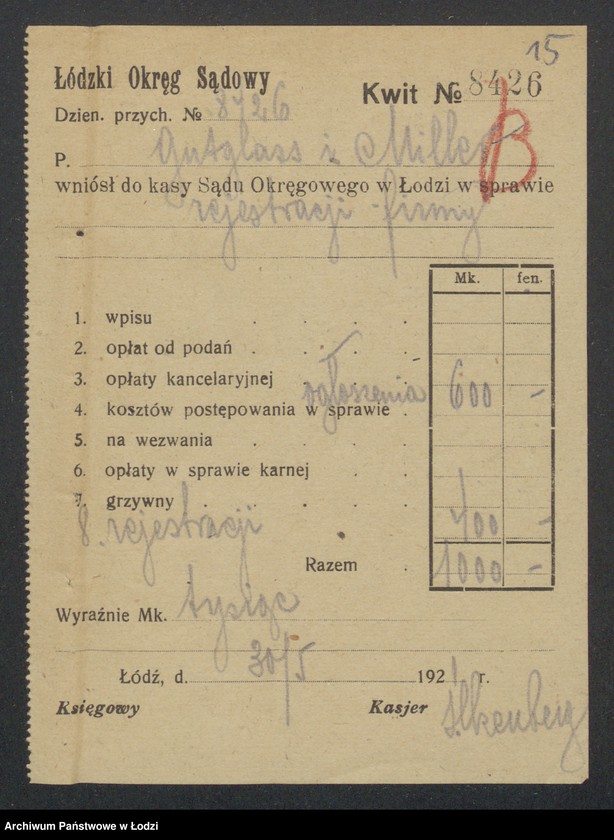 15
Łódzki Okręg Sądowy
Kwit № 8426
Dzien. przych. № 8426
P. Gutglass i Miller
B
wniósł do kasy Sądu Okręgowego w Łodzi w sprawie
rejestracji firmy
Mk. fen.
1. wpisu
2. opłat od podań
3. opłaty kancelaryjnej
ogłoszenia 600 -
4. kosztów postępowania w sprawie
5. na wezwania
6. opłaty w sprawie karnej
7. grzywny
8. rejestracji 400 -
Razem 1000 -
Wyraźnie Mk. tysiąc
Łódź, d. 30/5 1921 r.
Księgowy Kasjer
Archiwum Państwowe w Łodzi